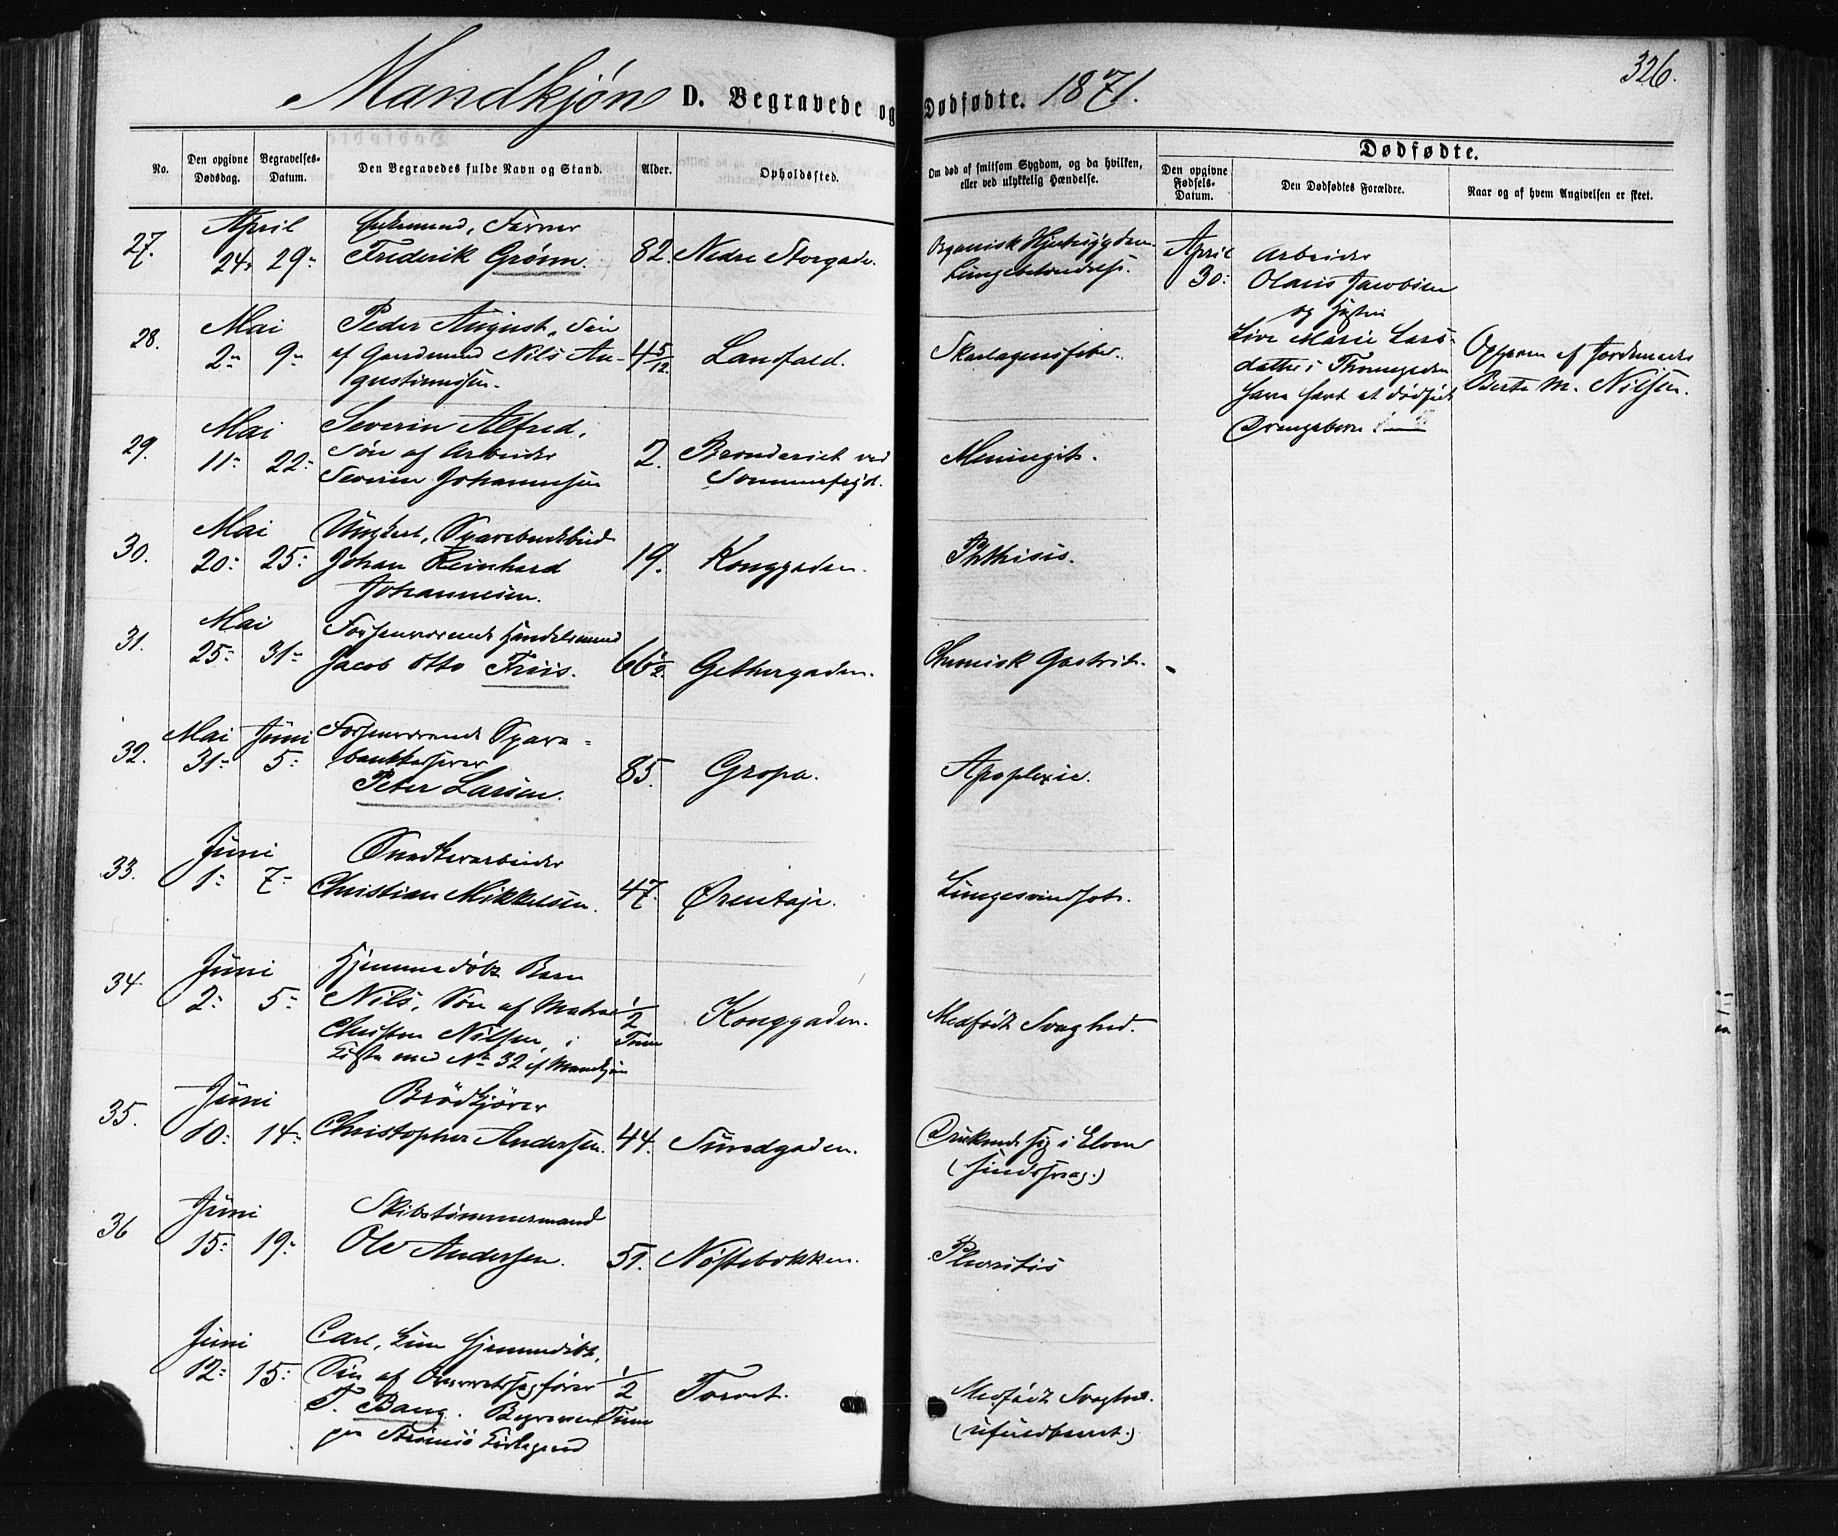 326.
Mandkjøn D. Begravede og Dødfødte. 1871.
No. | Den opgivne Dødsdag. | Begravelses-Datum. | Den Begravedes fulde Navn og Stand. | Alder. | Opholdssted. | Om død af smitsom Sygdom, og da hvilken, eller ved ulykkelig Hændelse. | Dødfødte.
Den opgivne Fødsels-Datum. | Den Dødfødtes Forældre. | Naar og af hvem Angivelsen er skeet.
27. April 24 29 Enkemand, Farver
Frederik Grønn. 82. Nedre Storgade. Organisk Hjertesygdom
Lungebetændelse.
April 30: Arbeider
Olaus Jacobsen
og Hustru
Live Marie Lars-
datter i Thomegaden
have havt et dødfødt
Drengebarn
Opgivn af Jordemoder
Berte M. Nilsen.
28. Mai 2 9 Peder August, Søn
af Gaardmand Nils Au-
gustinussen. 4 5/12 Landfald. Skarlagensfeber.
29. Mai 11 22 Severin Alfred,
Søn af Arbeider
Severin Johannesen 2. Brænderiet ved
Sommerfryd. Meningit.
30. Mai 20 25 Ungkarl, Sparebankbud
Johan Reinhard
Johannesen. 19. Konggaden. Phthisis.
31. Mai 25 31 Forhenværende Handelsmand
Jacob Otto Friis. 66 1/2 Gethergaden. Chronisk Gastrit.
32. Mai 31 Juni 5 Forhenværende Spare-
bankkasserer
Peter Larsen. 85. Gropa. Apoplexie.
33. Juni 1 7 Snedkerarbeider
Christian Mikkelsen. 47. Ørentøje. Lungesvindsot.
34 Juni 2 5 Hjemmedøbt Barn
Nils, Søn af Matros
Christen Nilsen, i
Kiste med No 32 af Mandkjøn 1/2 Time Konggaden. Medfødt Svaghed.
35. Juni 10 14 Brødkjører
Christopher Andersen. 44. Sundgaden. Druknede sig i Elven
(sindssvag.)
36 Juni 15 19 Skibstømmermand
Ole Andersen. 51. Nøstebakken. Pleuritis
Juni 12 15 Carl, kun hjemmedøbt,
Søn af Overretssagfører
T. Bang. Begraven
paa Strømsø Kirkegaard 1/2 Time Torvet. Medfødt Svaghed.
(ufuldbaaret.)